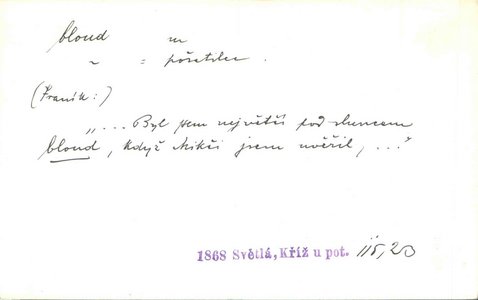 bloud m
~ = pošetilec.
(Franík:)
„... Byl jsem největší pod sluncem
bloud, když Mikši jsem uvěřil, ..."
1868 Světlá, Kříž u pot. 115,20